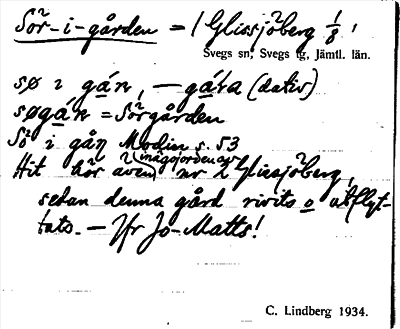 Sör-i-gården = 1 Glissjöberg 1/8 !
Svegs sn, Svegs tg, Jämtl. län.
sø i gán, — gáɽa (dativ)
søgáɽn = Sörgården
Sö i gåɽn Modin s. 53
Hit hör även (inägojorden av) av 2 Glissjöberg,
sedan denna gård rivits o utflyt-
tats. — Jfr Jo-Matts!
C. Lindberg 1934.